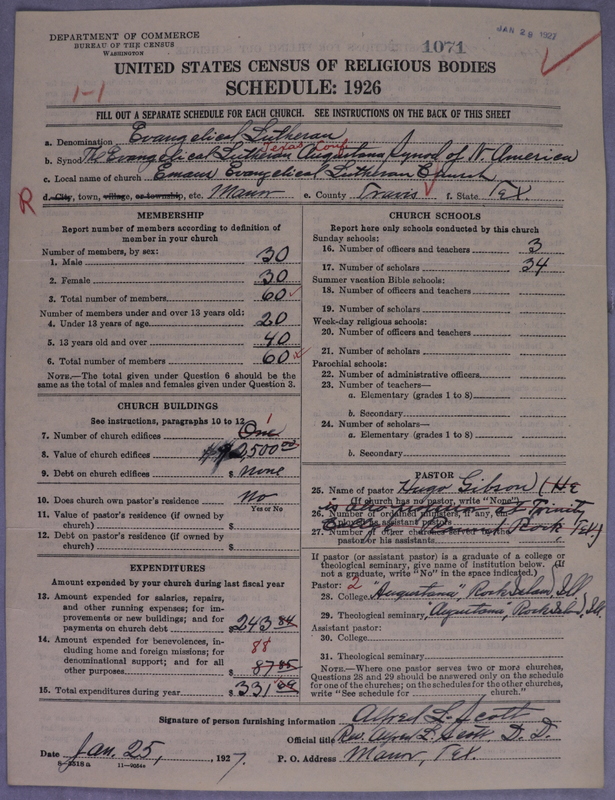 JAN 28 1927
DEPARTMENT OF COMMERCE
BUREAU OF THE CENSUS
WASHINGTON
1071
UNITED STATES CENSUS OF RELIGIOUS BODIES
SCHEDULE: 1926
1-1
FILL OUT A SEPARATE SCHEDULE FOR EACH CHURCH. SEE INSTRUCTIONS ON THE BACK OF THIS SHEET
a. Denomination Evangelical Lutheran
Texas Conf
b. Synod The Evangelical Lutheran Augustana Synod of N. America
c. Local name of church Emaus Evangelical Lutheran Church
R d. City, town, village, or township, etc. Manor e. County Travis f. State Tex.
MEMBERSHIP
Report number of members according to definition of member in your church
Number of members, by sex:
1. Male 30
2. Female 30
3. Total number of members 60
Number of members under and over 13 years old:
4. Under 13 years of age 20
5. 13 years old and over 40
6. Total number of members 60
NOTE.—The total given under Question 6 should be the
same as the total of males and females given under Question 3.
CHURCH BUILDINGS
See instructions, paragraphs 10 to 12
7. Number of church edifices One 1
8. Value of church edifices $ 2,500.00
9. Debt on church edifices $ none
10. Does church own pastor's residence No
Yes or No
11. Value of pastor's residence (if owned by
church) $
12. Debt on pastor's residence (if owned by
church) $
EXPENDITURES
Amount expended by your church during last fiscal year
13. Amount expended for salaries, repairs,
and other running expenses; for im-
provements or new buildings; and for
payments on church debt $ 243.84
14. Amount expended for benevolences, in- 88
cluding home and foreign missions; for
denominational support; and for all
other purposes $ 87.85
15. Total expenditures during year $ 331
CHURCH SCHOOLS
Report here only schools conducted by this church
Sunday schools:
16. Number of officers and teachers 3
17. Number of scholars 34
Summer vacation Bible schools:
18. Number of officers and teachers
19. Number of scholars
Week-day religious schools:
20. Number of officers and teachers
21. Number of scholars
Parochial schools:
22. Number of administrative officers
23. Number of teachers—
a. Elementary (grades 1 to 8)
b. Secondary
24. Number of scholars—
a. Elementary (grades 1 to 8)
b. Secondary
PASTOR
25. Name of pastor Hugo Gibson (He
(If church has no pastor, write "None")
is at Trinity
26. Number of ordained ministers, if any, em-
ployed as assistant pastors
Round Rock, Tex.)
27. Number of other churches served by the
pastor or his assistants
If pastor (or assistant pastor) is a graduate of a college or
theological seminary, give name of institution below. (If
not a graduate, write "No" in the space indicated.)
Pastor: 2
28. College "Augustana", Rock Island, Ill.
29. Theological seminary "Augustana", Rock Island, Ill.
Assistant pastor:
30. College
31. Theological seminary
NOTE.—Where one pastor serves two or more churches,
Questions 28 and 29 should be answered only on the schedule
for one of the churches; on the schedules for the other churches,
write "See schedule for church."
Signature of person furnishing information Alfred L. Scott
Official title Rev. Alfred L. Scott, D. D.
Date Jan. 25, , 1927. P. O. Address Manor, Tex.
8-2518a 11-9054